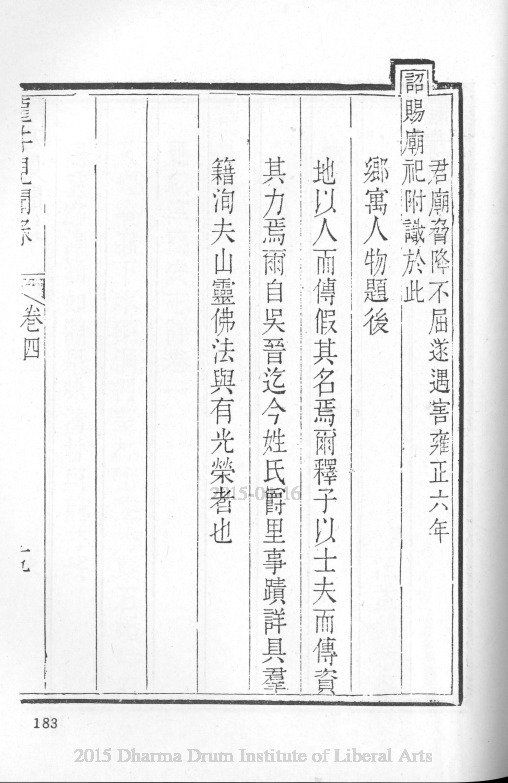 君廟脅降不屈遂遇害雍正六年
詔賜廟祀附識於此
鄉寓人物題後
地以人而傳假其名焉爾釋子以士夫而傳資
其力焉爾自吳晉迄今姓氏爵里事蹟詳具羣
籍洵夫山靈佛法與有光榮者也
龍井見聞錄
卷四
183
2015 Dharma Drum Institute of Liberal Arts